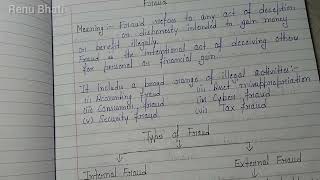 Renu Bhati
Fraud
Meaning:- Fraud refers to any act of deception
or dishonesty intended to gain money
or benefit illegally.
Fraud is the intentional act of deceiving others
for personal or financial gain
It Includes a broad range of illegal activities:-
(i) Accounting fraud (ii) Asset misappropriation
(iii) Consumer fraud (iv) Cyber fraud
(v) Security fraud (vi) Tax fraud
Types of Fraud
Internal Fraud External Fraud